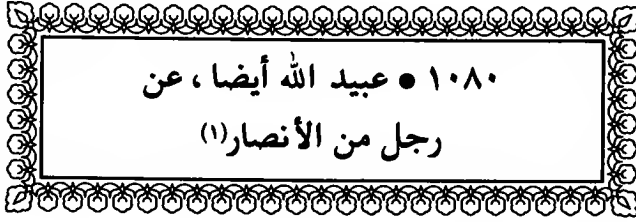 ١٠٨٠ • عبيد الله أيضا ، عن
رجل من الأنصار(١)